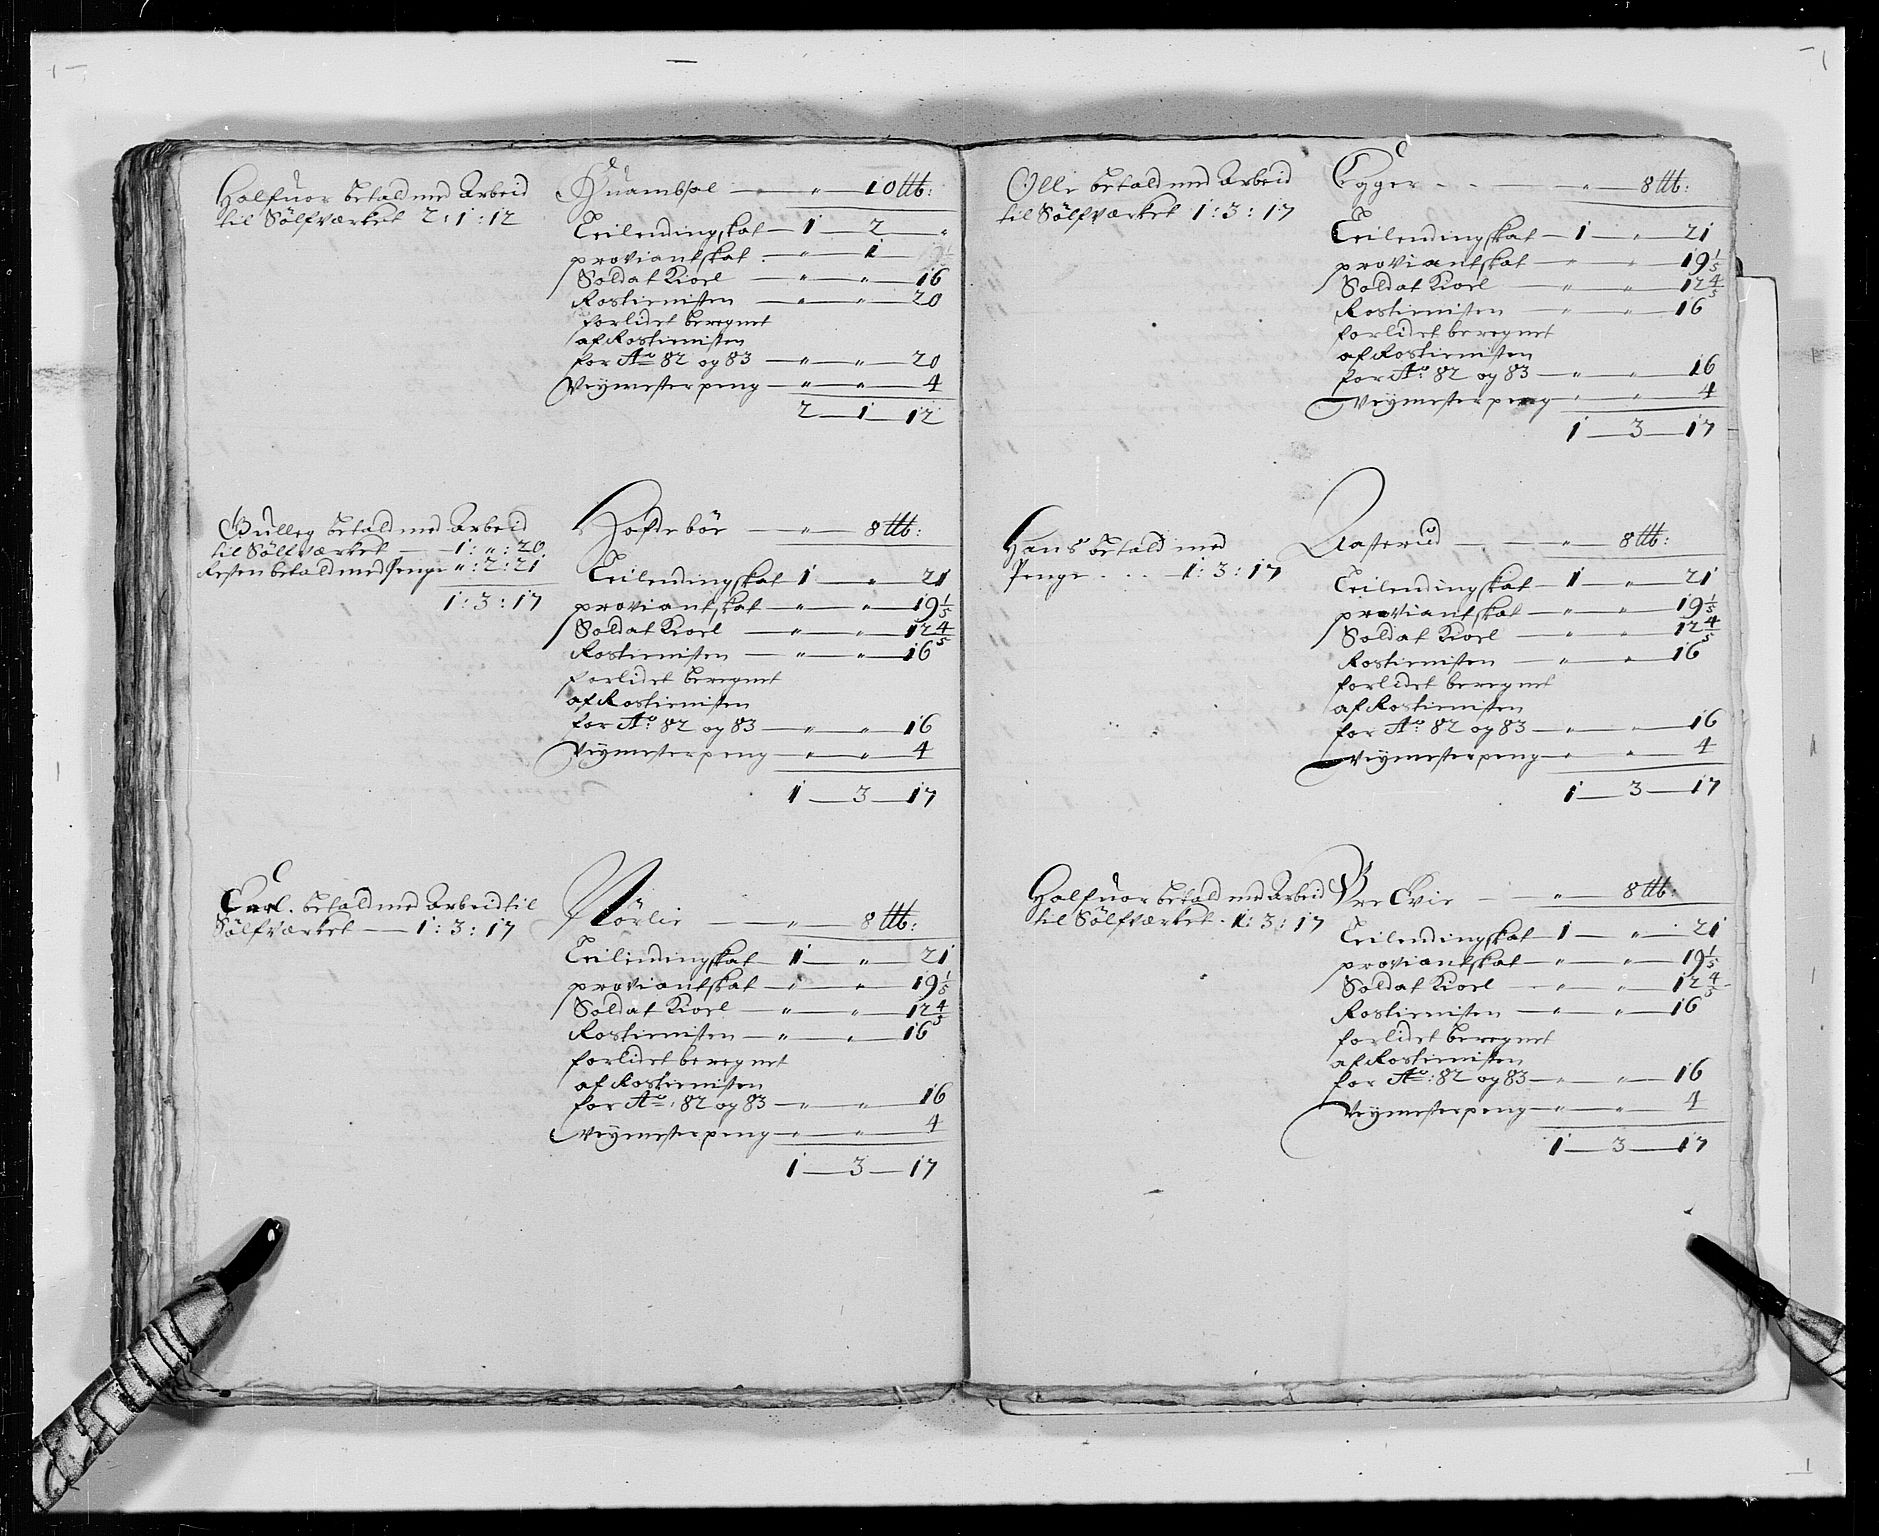 Halfuor betald med Arbeid
til Sölfværket 2 : 1 : 12
Quambsol — " — 10 ℔:
Leilendingskat — 1 — 2 — "
proviantskat . — " — 1
Soldat Kioel — " — " — 16
Rostienisten — " — " — 20
forlidet beregnet
af Rostienisten
for Aº 82 og 83 — " — " — 20
Veymesterpeng — " — " — 4
2 — 1 — 12
Gulleg betald med Arbeid
til Sölfværket — 1 : " : 20.
Resten betald med Penge " : 2 : 21
1 : 3 : 17
Hofdeböe — " — 8 ℔:
Leilendingskat 1 — " — 21
proviantskat — " — " — 19 1/5
Soldat Kioel — " — " — 12 4/5
Rostienisten — " — " — 16
forlidet beregnet
af Rostienisten
for Aº: 82 og 83 — " — " — 16
Veymesterpeng — " — " — 4
1 — 3 — 17
betald med Arbeid til
Sölfværket — 1 : 3 : 17
Nörlie — " — 8 ℔:
Leilendingskat — 1 — " — 21
proviantskat — " — " — 19 1/5
Soldat Kioel — " — " — 12 4/5
Rostienisten — " — " — 16
forlidet beregnet
af Rostienisten
for Aº: 82 og 83 — " — " — 16
Veymesterpeng — " — " — 4
1 — 3 — 17
Olle betald med Arbeid
til Sölfværket 1 : 3 : 17
Egger - - — " — 8 ℔:
Leilendingskat — 1 — " — 21
proviantskat — " — " — 19 1/5
Soldat Kioel — " — " — 12 4/5
Rostienisten — " — " — 16
forlidet beregnet
af Rostienisten
for Aº: 82 og 83 — " — " — 16
Veymesterpeng — " — " — 4
1 — 3 — 17
Hans betald med
Penge . . . — 1 : 3 : 17
Aasterud — " — 8 ℔:
Leilendingskat — 1 — " — 21
proviantskat — " — " — 19 1/5
Soldat Kioel — " — " — 12 4/5
Rostienisten — " — " — 16
forlidet beregnet
af Rostienisten
for Aº: 82 og 83 — " — " — 16
Veymesterpeng — " — " — 4
1 — 3 — 17
Halfuor betald med Arbeid
til Sölfværket . 1 : 3 : 17
— " — 8 ℔:
Leilendingskat — 1 — " — 21
proviantskat — " — " — 19 1/5
Soldat Kioel — " — " — 12 4/5
Rostienisten — " — " — 16
forlidet beregnet
af Rostienisten
for Aº: 82 og 83 — " — " — 16
Veymesterpeng — " — " — 4
1 — 3 — 17